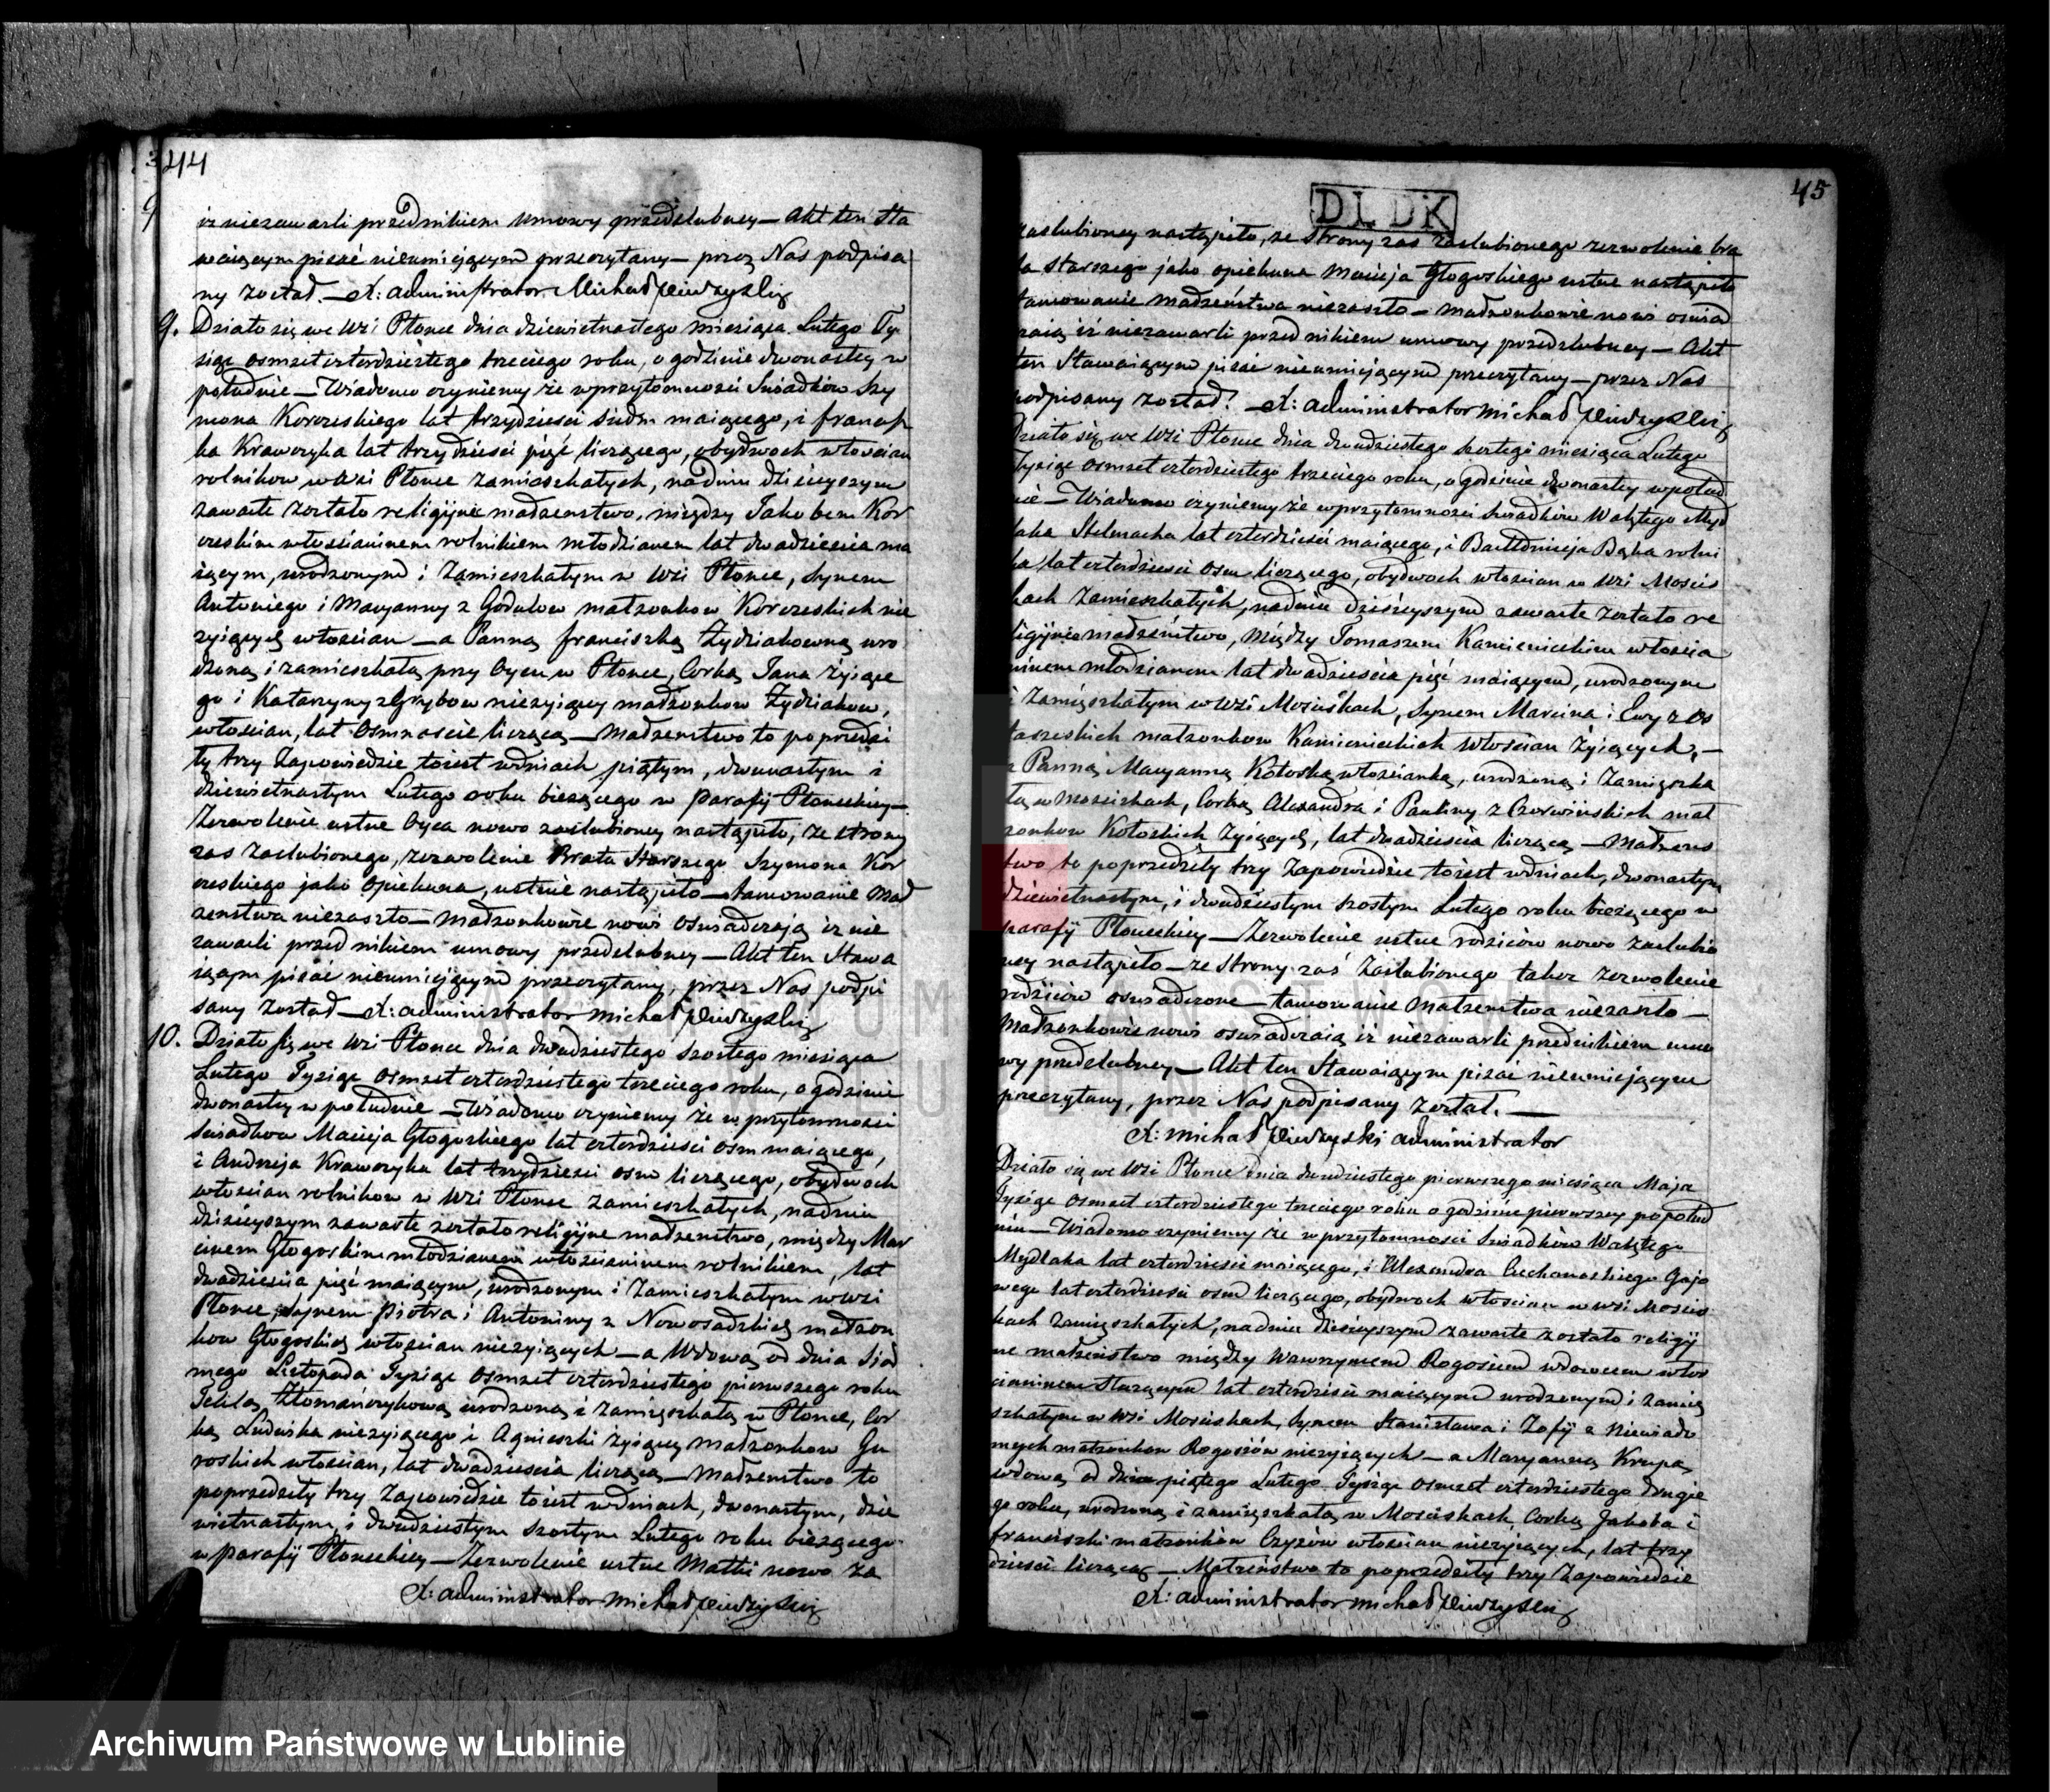 344
9
iż niezawarli przed nikiem umowy przedślubney — Akt ten sta
waiącym pisać nieumiejącym przeczytany — przez Nas podpisa
ny został. — X: administrator Michał
9. Działo się we wsi Płonce dnia dziewietnastego miesiąca Lutego Ty
siąc osmset czterdziestego trzeciego roku, o godzinie dwonastey w
południe — Wiadomo czyniemy że wprzytomności Swiadków Szy
mona Korczeskiego lat trzydzieści siedm maiącego, i francisz
ka Krawczyka lat trzydzieści pięć liczącego, obydwoch włościan
rolnikow w wsi Płonce zamieszkałych, na dniu dzisieyszym
zawarte zostało religijne madżenstwo, między Jakobem Kor
czeskim włościaninem rolnikiem młodzianem lat dwadzieścia ma
iącym, urodzonym i zamieszkałym w wsi Płonce, Synem
Antoniego i Maryanny z Godulow małżonkow Korczeskich nie
zyiących włościan — a Panną franciszką Żydziakowną uro
dzoną i zamieszkałą przy Oycu w Płonce, Corką Jana żyiące
go i Katarzyny z Grybow niezyiącey madżonkow Żydziakow,
włościan, lat Osmnaście liczącą — Madżenstwo to poprzedzi
ły trzy Zapowiedzie toiest w dniach piątym, dwunastym i
dziewietnastym Lutego roku bieżącego w Parafij Płonskiey —
Zezwolenie ustne Oyca nowo zaslubioney nastąpiło, ze strony
zas Zaslubionego, zezwolenie Brata Starszego Szymona Kor
czeskiego jako Opiekuna, ustnie nastąpiło — tamowanie mad
żenstwa niezaszło — Madżonkowie nowi oswiadczają iż nie
zawarli przed nikiem umowy przedslubney — Akt ten Stawa
iącym pisać nieumiejącym przeczytany, przez Nas podpi
sany został — X: administrator Michał
10. Działo się we wsi Płonce dnia dwudziestego szostego miesiąca
Lutego Tysiąc Osmset czterdziestego trzeciego roku, o godzinie
dwonastey w południe — Wiadomo czyniemy że w przytomności
Swiadkow Macieja Głogoskiego lat czterdzieści osm maiącego,
i Andrzeja Krawczyka lat trzydzieści osm liczącego, obydwoch
włościan rolnikow w wsi Płonce zamieszkałych, na dniu
dzisieyszym zawarte zostało religijne madżenstwo, między Mar
cinem Głogoskim młodzianem włościaninem rolnikiem, lat
dwadzieścia pięć maiącym, urodzonym i zamieszkałym w wsi
Płonce, Synem Piotra i Antoniny z Nowosadzkich madżon
kow Głogoskich włościan niezyiących — a Wdową od dnia Siod
mego Listopada Tysiąc osmset czterdziestego pierwszego roku
Teklą Złomańczykową urodzoną i zamięszkałą w Płonce, Cor
ką Ludwika niezyiącego i Agnieszki żyiącey madżonkow Gu
roskich włościan, lat dwadzieścia liczącą — Madżenstwo to
poprzedziły trzy Zapowiedzie toiest w dniach, dwonastym, dzie
wietnastym i dwudziestym szostym Lutego roku bieżącego
w Parafij Płonskiey — Zezwolenie ustne Matki nowo Za
X: administrator Michał
45
DLDK
zaslubioney nastąpiło, ze strony zas zaslubionego zezwolenie bra
ta starszego jako opiekuna Macieja Głogoskiego ustne nastąpiło
tamowanie Madżeństwa niezaszło — Madżonkowie nowi oswiad
czaią iż niezawarli przed nikiem umowy przedslubney — Akt
ten Stawaiącym pisać nieumiejącym przeczytany — przez Nas
podpisany został. — X: administrator Michał
Działo się we wsi Płonce dnia dwudziestego szostego miesiąca Lutego
Tysiąc osmset czterdziestego trzeciego roku, o godzinie dwonastey w połud
nie — Wiadomo czyniemy że wprzytomności Swiadków Walętego Myd
laka Stelmacha lat czterdzieści maiącego, i Bartłomieja Bąka rolni
ka lat czterdzieści osm liczącego, obydwoch włościan w wsi Mości
kach zamieszkałych, na dniu dzisieyszym zawarte zostało re
ligijne madżeństwo, między Tomaszem Kamienieckim włościa
ninem młodzianem lat dwadzieścia pięć maiącym, urodzonym
i zamięszkałym w wsi Mościskach, Synem Marcina i Ewy z Os
taszeskich małżonkow Kamienieckich włościan żyiących, —
a Panną Maryanną Kotoską włościanką, urodzoną i zamięszka
łą w Mościskach, Corką Alexandra i Pauliny z Czerwińskich mał
żonkow Kotoskich Żyiących, lat dwadzieścia liczącą — Madżens
two to poprzedziły trzy Zapowiedzie toiest w dniach, dwonastym
dziewietnastym, i dwudziestym szostym Lutego roku bieżącego w
parafij Płonskiey — Zezwolenie ustne rodziców nowo zaslubio
ney nastąpiło — ze strony zaś Zaslubionego także zezwolenie
rodziców oswiadczone — tamowanie Małżenstwa niezaszło —
Madżonkowie nowi oswiadczaią iż niezawarli przednikiem umo
wy przedslubney — Akt ten Stawaiącym pisać nieumiejącym
przeczytany, przez Nas podpisany został. —
X: Michał administrator
Działo się we wsi Płonce dnia dwudziestego pierwszego miesiąca Maja
Tysiąc Osmset czterdziestego trzeciego roku o godzinie pierwszey popołud
niu — Wiadomo czyniemy że w przytomności Swiadków Walętego
Mydlaka lat czterdzieści maiącego, i Alexandra Ciechanoskiego Gajo
wego lat czterdzieści osm liczącego, obydwoch włościan w wsi Mościs
kach zamięszkałych, na dniu dzisieyszym zawarte zostało religij
ne małżeństwo między Wawrzyncem Rogosiem wdowcem włoś
cianinem Służącym lat czterdzieści maiącym urodzonym i zamię
szkałym w wsi Mościskach, Synem Stanisława i Zofij z Niewiado
mych małżonkow Rogosiów niezyiących — a Maryanną Krupą
wdową od dnia piątego Lutego Tysiąc osmset czterdziestego drugie
go roku, urodzoną i zamięszkałą w Mościskach Corką Jakóba i
franciszki małżonków Czyżów włościan niezyiących, lat trzy
dzieści liczącą — Małżeństwo to poprzedziły trzy Zapowiedzie
X: administrator Michał
Archiwum Państwowe w Lublinie